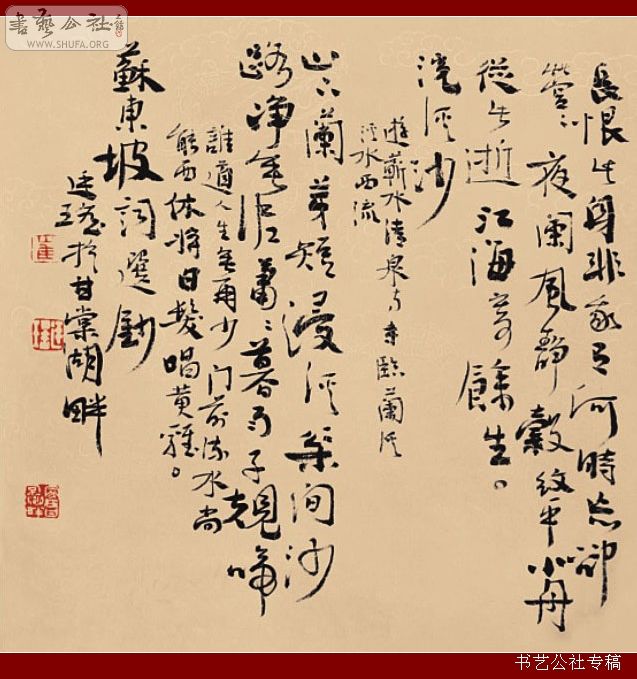 書藝公社
WWW.SHUFA.ORG
長恨此身非我有何時忘卻
營〻夜闌風靜縠紋平小舟
從此逝江海寄餘生。
浣溪沙
遊蘄水清泉寺寺臨蘭溪
溪水西流
山下蘭芽短浸溪松間沙
路淨無泥蕭〻暮雨子規啼
誰道人生無再少門前流水尚
能西休將白髮唱黃雞。
蘇東坡詞選鈔
於甘棠湖畔
书艺公社专稿